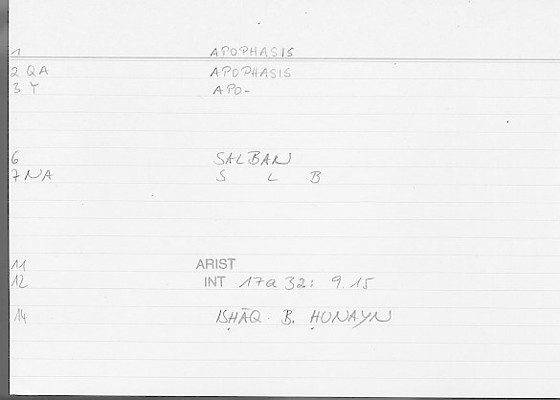 1 APOPHASIS
2 QA APOPHASIS
3 Y APO-
6 SALBAN
7 NA S L B
11 ARIST
12 INT 17a 32: 9.15
14 ISḤĀQ B. ḤUNAYN